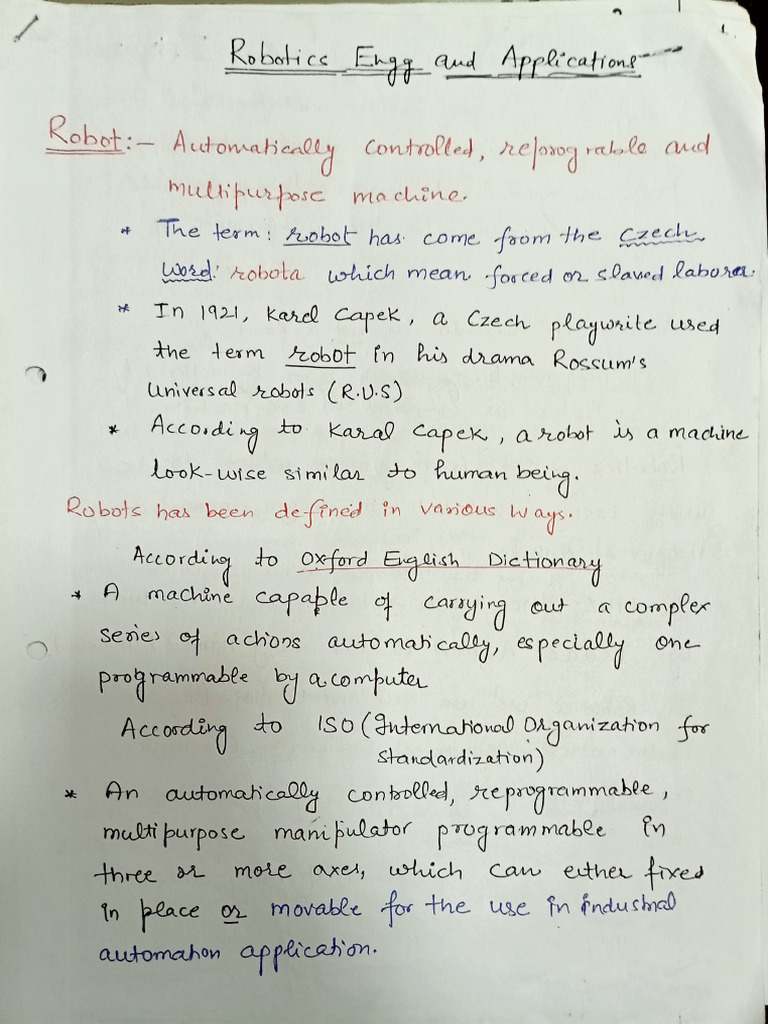 Robotics Engg and Applications
Robot:- Automatically controlled, reprograble and
multipurpose machine.
* The term: robot has come from the Czech
word: robota which mean forced or slaved labora.
* In 1921, Karel Capek, a Czech playwrite used
the term robot in his drama Rossum's
Universal robots (R.U.S)
* According to Karal Capek, a robot is a machine
look-wise similar to human being.
Robots has been defined in various ways.
According to Oxford English Dictionary
* A machine capable of carrying out a complex
series of actions automatically, especially one
programmable by a computer
According to ISO (International Organization for
Standardization)
* An automatically controlled, reprogrammable,
multipurpose manipulator programmable in
three or more axes, which can either fixed
in place or movable for the use in industrial
automation application.